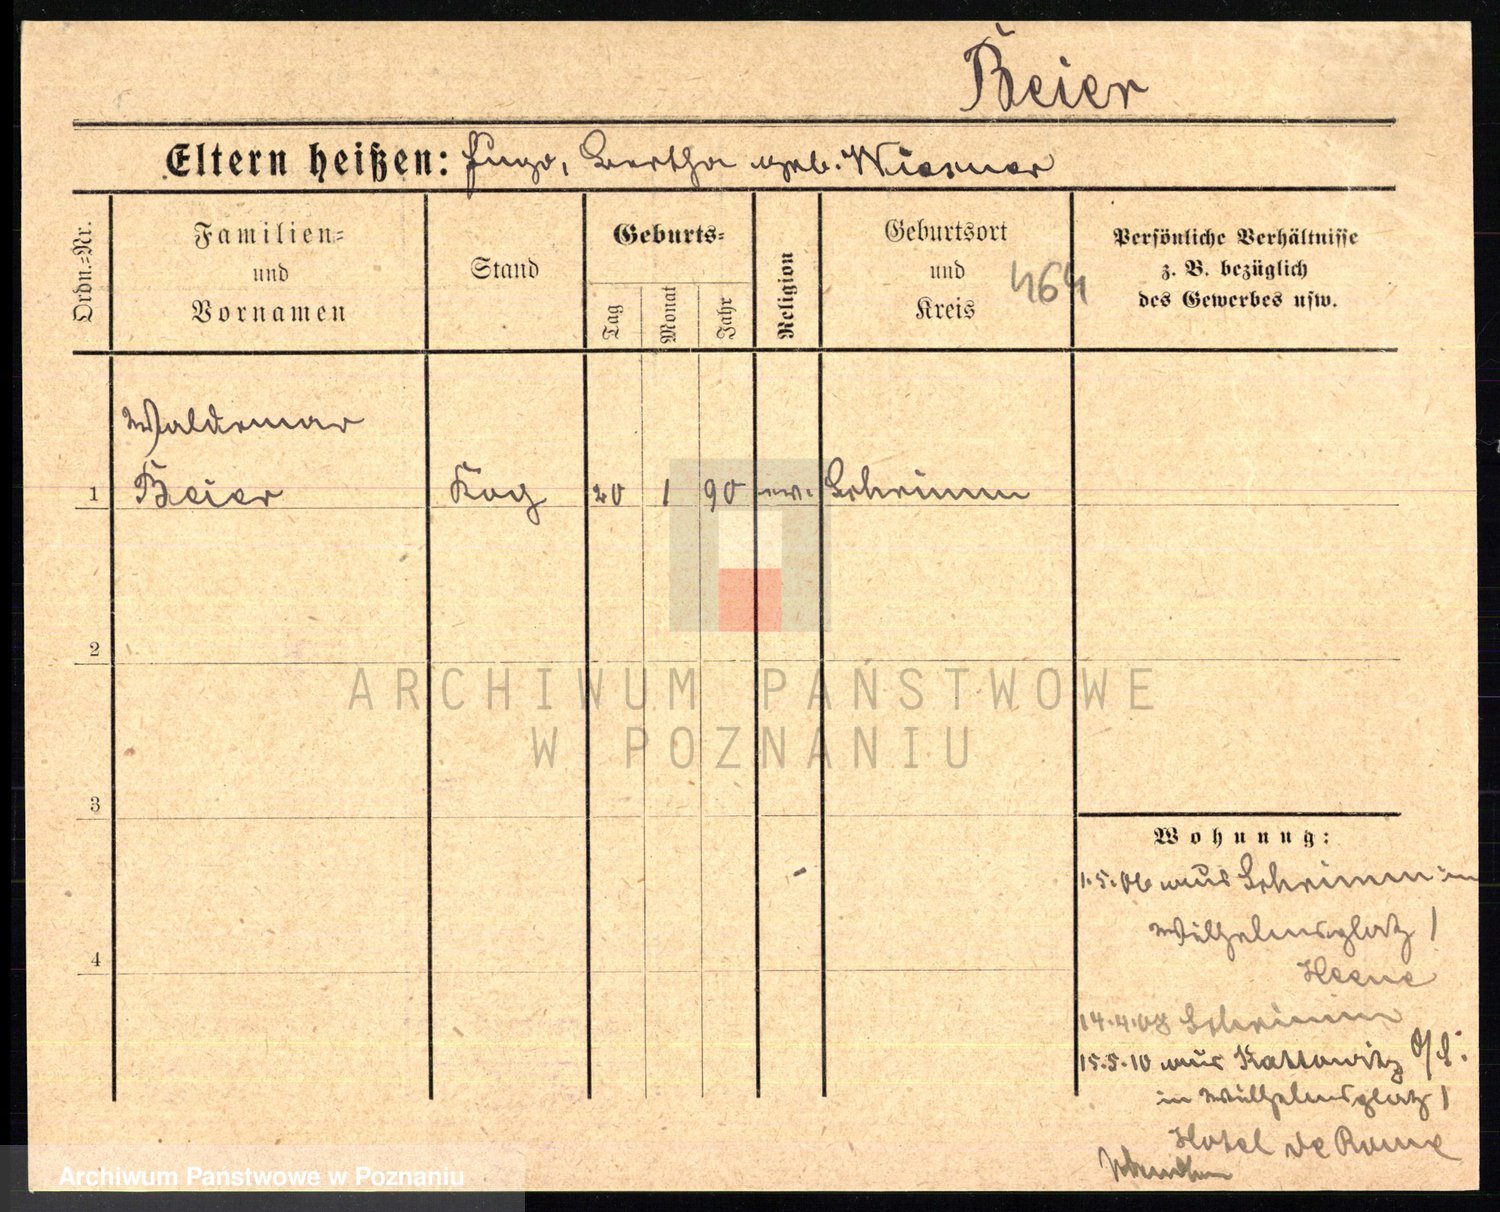 Beier
Eltern heißen: Hugo, Bertha geb. Wiesner
Ordn.=Nr.
Familien=
und
Vornamen
Stand
Geburts=
Tag
Monat
Jahr
Religion
Geburtsort
und
Kreis
464
Persönliche Verhältnisse
z. B. bezüglich
des Gewerbes usw.
Waldemar
1 Beier Kog 20 1 90 ev. Schrimm
2
ARCHIWUM PAŃSTWOWE
W POZNANIU
3
4
Wohnung:
1.5.06 aus Schrimm in
Wilhelmsplatz 1
Heene
14.4.08 Schrimm
15.5.10 aus Kattowitz O/S.
in Wilhelmsplatz 1
Hotel de Rome
Archiwum Państwowe w Poznaniu